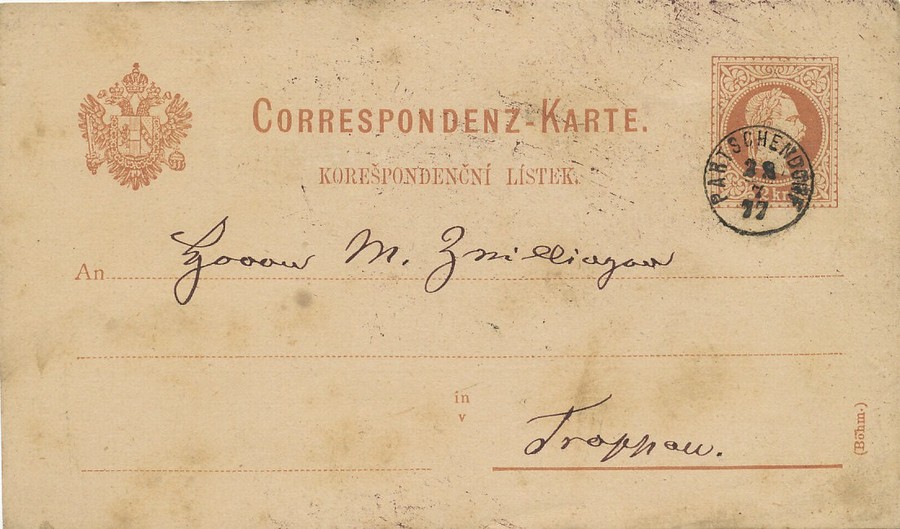 CORRESPONDENZ-KARTE.
KOREŠPONDENČNÍ LÍSTEK.
2 kr.
PARTSCHENDORF
28
7
77
An Herrn M. Zwillinger
in
v
Troppau.
(Böhm.)